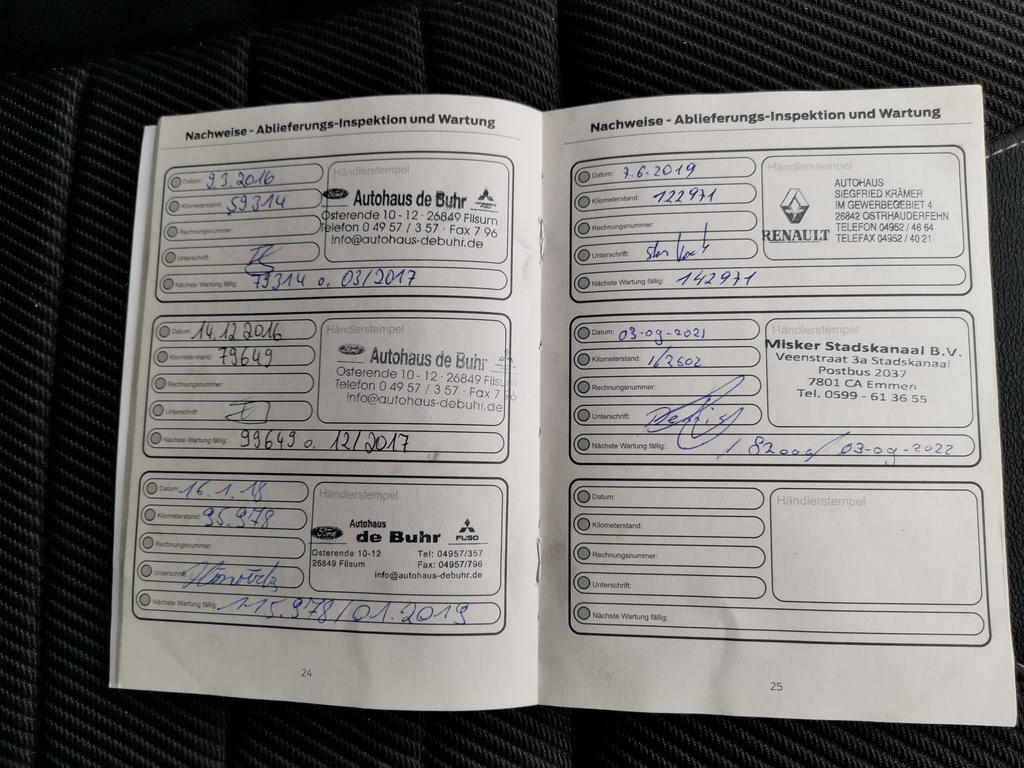 Nachweise - Ablieferungs-Inspektion und Wartung
Datum: 9.3.2016
Kilometerstand: 59314
Rechnungsnummer:
Unterschrift:
Nächste Wartung fällig: 79314 o. 03/2017
Händlerstempel
Ford Autohaus de Buhr
Osterende 10 - 12 · 26849 Filsum
Telefon 0 49 57 / 3 57 · Fax 7 96
info@autohaus-debuhr.de
Datum: 14.12.2016
Kilometerstand: 79649
Rechnungsnummer:
Unterschrift:
Nächste Wartung fällig: 99649 o. 12/2017
Händlerstempel
Ford Autohaus de Buhr
Osterende 10 - 12 · 26849 Filsum
Telefon 0 49 57 / 3 57 · Fax 7 96
info@autohaus-debuhr.de
Datum: 16.1.18
Kilometerstand: 95.978
Rechnungsnummer:
Unterschrift:
Nächste Wartung fällig: 115.978/01.2019
Händlerstempel
Ford Autohaus de Buhr FUSO
Osterende 10-12 Tel: 04957/357
26849 Filsum Fax: 04957/796
info@autohaus-debuhr.de
24
Nachweise - Ablieferungs-Inspektion und Wartung
Datum: 7.6.2019
Kilometerstand: 122971
Rechnungsnummer:
Unterschrift:
Nächste Wartung fällig: 142971
Händlerstempel
RENAULT
AUTOHAUS
SIEGFRIED KRÄMER
IM GEWERBEGEBIET 4
26842 OSTRHAUDERFEHN
TELEFON 04952 / 46 64
TELEFAX 04952 / 40 21
Datum: 03-09-2021
Kilometerstand: 162502
Rechnungsnummer:
Unterschrift:
Nächste Wartung fällig: 182000/ 03-09-2022
Händlerstempel
Misker Stadskanaal B.V.
Veenstraat 3a Stadskanaal
Postbus 2037
7801 CA Emmen
Tel. 0599 - 61 36 55
Datum:
Kilometerstand:
Rechnungsnummer:
Unterschrift:
Nächste Wartung fällig:
Händlerstempel
25